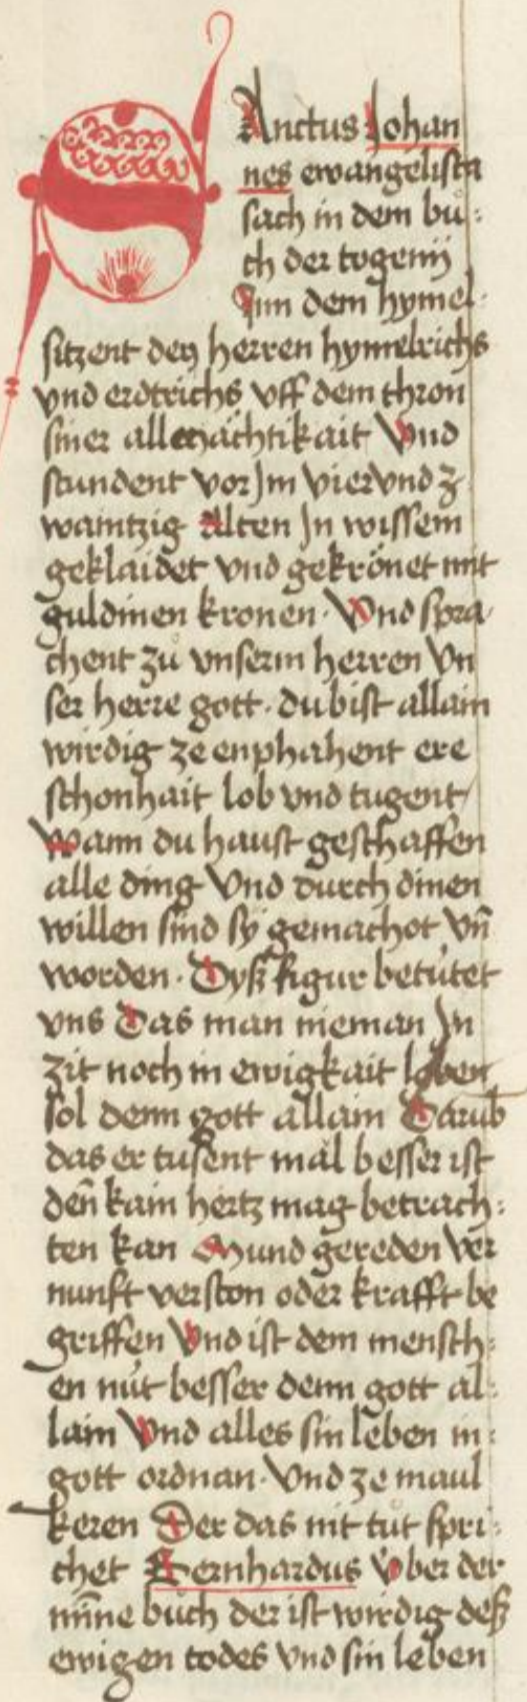 SAnctus Johan
nes ewangelista
sach in dem bů:
ch der togenij
Inn dem hymel:
sitzent den herren hymelrichs
vnd erdtrichs vff dem thron
siner allmächtikait Vnd
stundent vor Im vier vnd z
waintzig Alten In wissem
geklaidet vnd gekrönet mit
guldinen kronen. Vnd spra
chent zů vnserm herren Vn
ser herre gott. du bist allain
wirdig ze enphahent ere
schonhait lob vnd tugent
Wann du haust geschaffen
alle ding Vnd durch dinen
willen sind sÿ gemachot vn̄
worden. Dysß figur betútet
vns Das man nieman In
zit noch in ewigkait loben
sol denn gott allain Darub
das er tusent mäl besser ist
den̄ kain hertz mag betrach:
ten kan Mund gereden ver
nunft verston oder krafft be
griffen Vnd ist dem mensch:
en nút besser denn gott al:
lain Vnd alles sin leben in:
gott ordnan. Vnd ze maul
keren Der das nit tůt spri:
chet Bernhardus Vber der
min̄e bůch der ist wirdig deß
ewigen todes Vnd sin leben